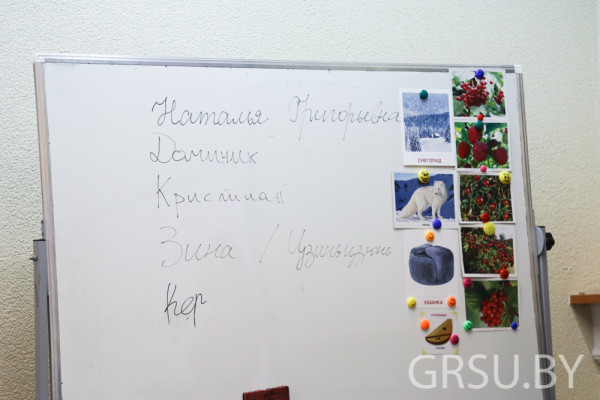 Наталья Григорьевна
Доминик
Кристиан
Зина / Цзиньцзюнь
Кор
СНЕГОПАД
УШАНКА
GRSU.BY